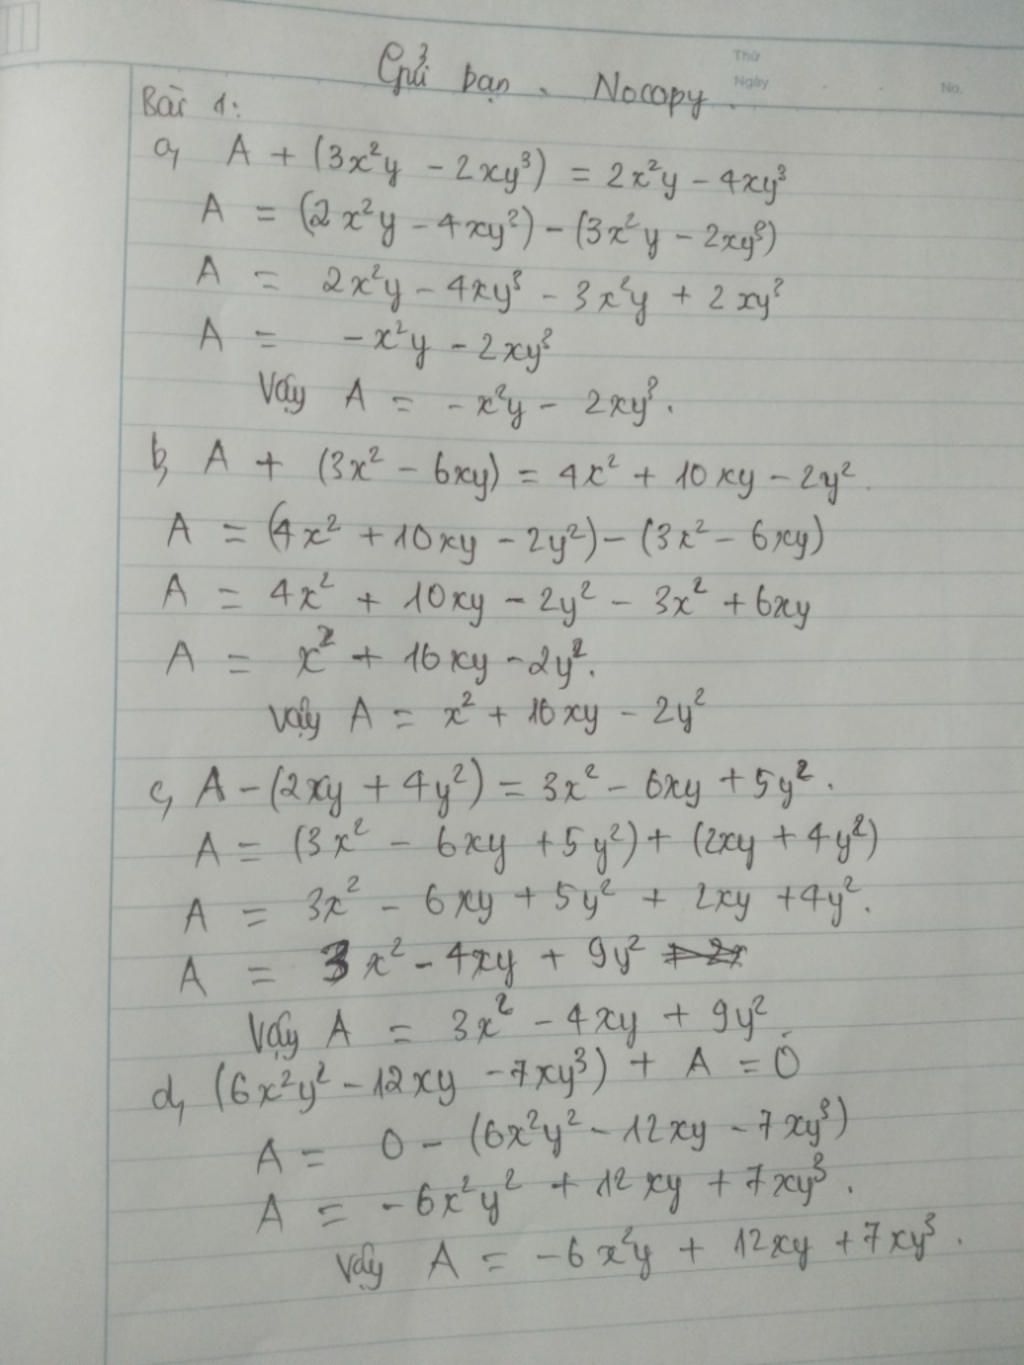 Thứ
Ngày
No.
Gửi bạn. Nocopy.
Bài 1:
a, A + (3x²y - 2xy³) = 2x²y - 4xy³
A = (2x²y - 4xy³) - (3x²y - 2xy³)
A = 2x²y - 4xy³ - 3x²y + 2xy³
A = -x²y - 2xy³
Vậy A = -x²y - 2xy³.
b, A + (3x² - 6xy) = 4x² + 10xy - 2y².
A = (4x² + 10xy - 2y²) - (3x² - 6xy)
A = 4x² + 10xy - 2y² - 3x² + 6xy
A = x² + 16xy - 2y².
Vậy A = x² + 16xy - 2y²
c, A - (2xy + 4y²) = 3x² - 6xy + 5y².
A = (3x² - 6xy + 5y²) + (2xy + 4y²)
A = 3x² - 6xy + 5y² + 2xy + 4y².
A = 3x² - 4xy + 9y²
Vậy A = 3x² - 4xy + 9y²
d, (6x²y² - 12xy - 7xy³) + A = 0
A = 0 - (6x²y² - 12xy - 7xy³)
A = -6x²y² + 12xy + 7xy³.
Vậy A = -6x²y + 12xy + 7xy³.